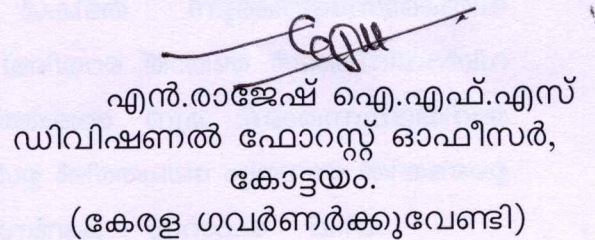 എൻ.രാജേഷ് ഐ.എഫ്.എസ്
ഡിവിഷണൽ ഫോറസ്റ്റ് ഓഫീസർ,
കോട്ടയം.
(കേരള ഗവർണർക്കുവേണ്ടി)